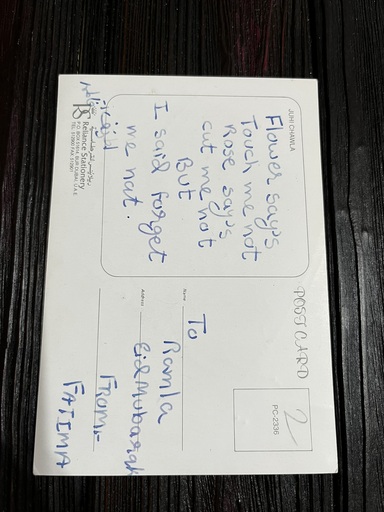 JUHI CHAWLA
Flower say's
Touch me not
Rose say's
cut me not
But
I said forget
me not.
Reliance Stationery
POSTCARD
PC-2336
2
Name
To
Ramla
Address
Eid Mubarak
FROM:-
FATIMA